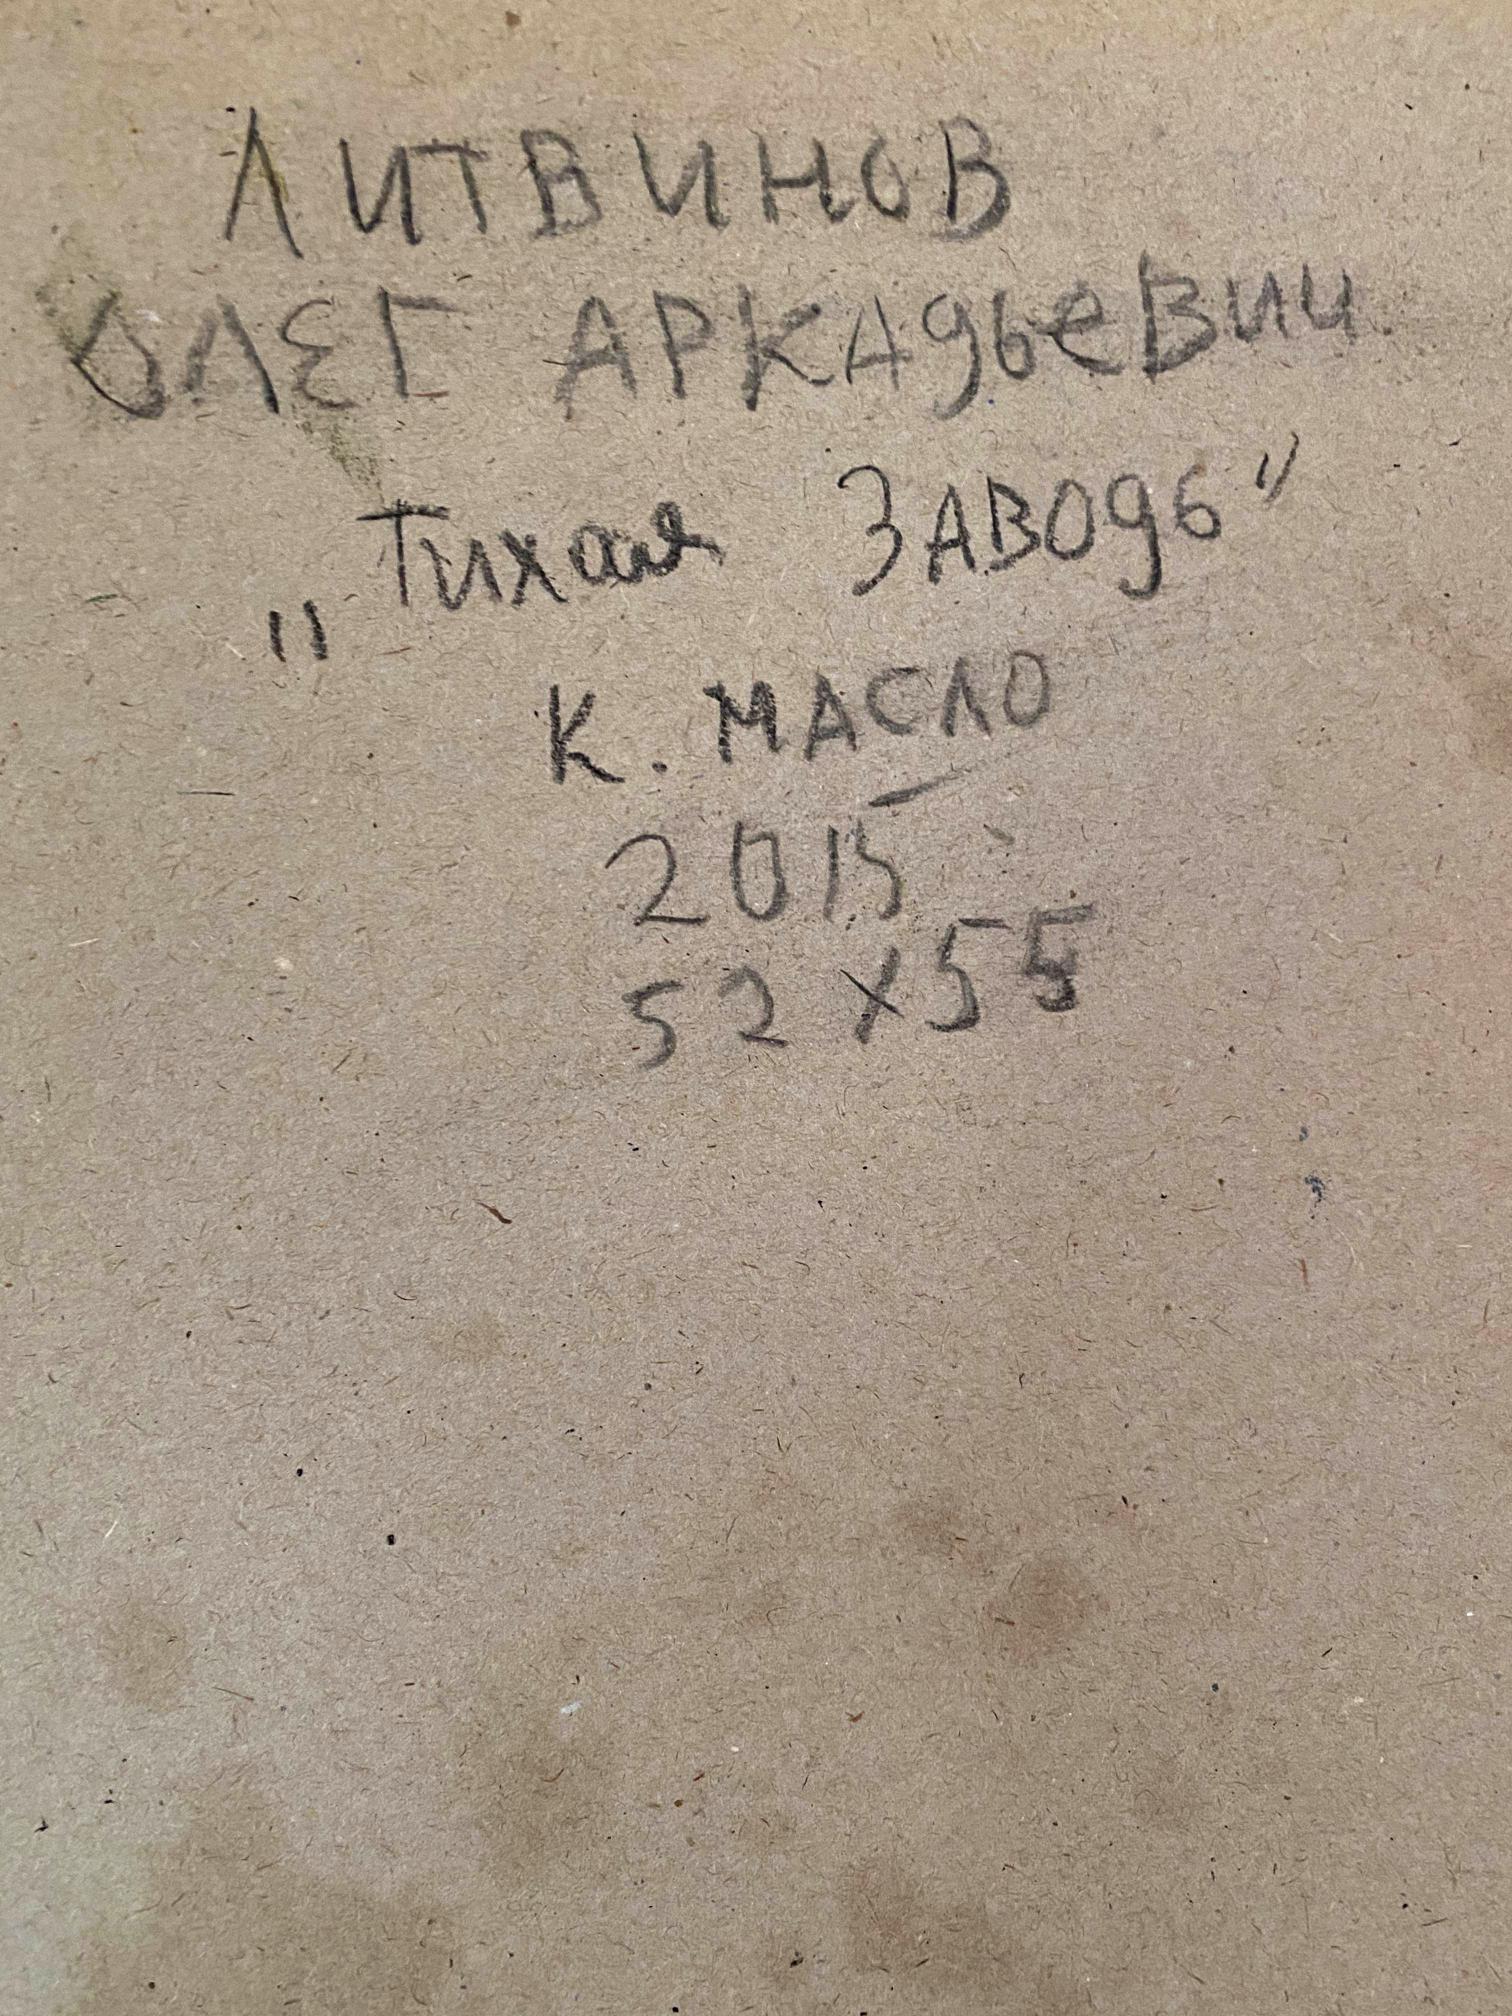 ЛИТВИНОВ
ОЛЕГ АРКАДЬЕВИЧ
„Тихая ЗАВОДЬ"
К. МАСЛО
2015
52 x 55